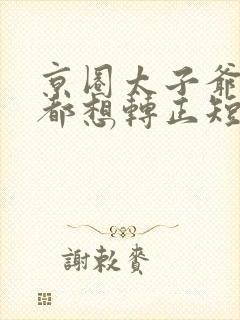 京圈太子爺
都想轉正短
謝敕賚